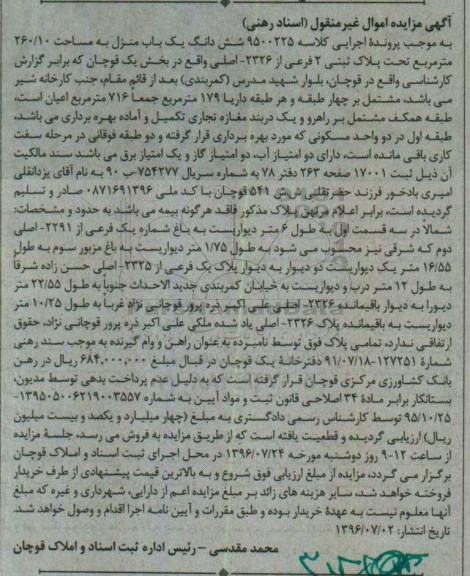 آگهی مزایده اموال غیرمنقول (اسناد رهنی)
به موجب پرونده اجرایی کلاسه ۹۵۰۰۲۲۵ شش دانگ یک باب منزل به مساحت ۲۶۰/۱۰
مترمربع تحت پلاک ثبتی ۲ فرعی از ۲۳۲۶- اصلی واقع در بخش یک قوچان که برابر گزارش
کارشناسی واقع در قوچان، بلوار شهید مدرس (کمربندی) بعد از قائم مقام، جنب کارخانه شیر
می باشد، مشتمل بر چهار طبقه و هر طبقه دارا ۱۷۹ مترمربع جمعاً ۷۱۶ مترمربع اعیان است،
طبقه همکف مشتمل بر راهرو و یک دربند مغازه تجاری تکمیل و آماده بهره برداری می باشد،
طبقه اول در دو واحد مسکونی که مورد بهره برداری قرار گرفته و دو طبقه فوقانی در مرحله سفت
کاری باقی مانده است، دارای دو امتیاز آب، دو امتیاز گاز و یک امتیاز برق می باشد سند مالکیت
آن ذیل ثبت ۱۷۰۰۱ صفحه ۲۶۳ دفتر ۷۸ به شماره سریال ۷۵۴۲۷۷-ب ۹۰ به نام آقای یزدانقلی
امیری بادخور فرزند حضرتقلی ش ش ۵۴۹ قوچان با کد ملی ۰۸۷۱۶۹۱۳۹۶ صادر و تسلیم
گردیده است، برابر اعلام مرتهن پلاک مذکور فاقد هرگونه بیمه می باشد به حدود و مشخصات:
شمالا در سه قسمت اول به طول ۶ متر دیواریست به باغ شماره یک فرعی از ۲۲۹۱- اصلی
دوم که شرقی نیز محسوب می شود به طول ۱/۷۵ متر دیواریست به باغ مزبور سوم به طول
۱۶/۵۵ متر یک دیواریست دو دیوار به دیوار پلاک یک فرعی از ۲۳۲۵- اصلی حسن زاده شرقاً
به طول ۱۲ متر درب و دیواریست به خیابان کمربندی جدید الاحداث جنوباً به طول ۲۲/۵۵ متر
دیورا به دیوار باقیمانده ۲۳۲۶- اصلی علی اکبر ذره پرور قوچانی نژاد غرباً به طول ۱۰/۲۵ متر
دیواریست به باقیمانده پلاک ۲۳۲۶- اصلی یاد شده ملکی علی اکبر ذره پرور قوچانی نژاد، حقوق
ارتفاقی ندارد، تمامی پلاک فوق توسط نامبرده به عنوان راهن و وام گیرنده به موجب سند رهنی
شماره ۱۲۷۲۵۱-۹۱/۰۷/۱۸ دفترخانه یک قوچان در قبال مبلغ ۶۸۴,۰۰۰,۰۰۰ ریال در رهن
بانک کشاورزی مرکزی قوچان قرار گرفته است که به دلیل عدم پرداخت بدهی توسط مدیون،
بستانکار برابر مادۀ ۳۴ اصلاحی قانون ثبت و مواد آیین به شماره ۱۳۹۵۰۵۰۰۶۲۱۹۰۰۳۵۵۷-
۹۵/۱۰/۲۵ توسط کارشناس رسمی دادگستری به مبلغ (چهار میلیارد و یکصد و بیست میلیون
ریال) ارزیابی گردیده و قطعیت یافته است که از طریق مزایده به فروش می رسد، جلسۀ مزایده
از ساعت ۱۲-۹ روز دوشنبه مورخه ۱۳۹۶/۰۷/۲۴ در محل اجرای ثبت اسناد و املاک قوچان
برگزار می گردد، مزایده از مبلغ ارزیابی فوق شروع و به بالاترین قیمت پیشنهادی از طرف خریدار
فروخته خواهد شد، سایر هزینه های زائد بر مبلغ مزایده اعم از دارایی، شهرداری و غیره که مبلغ
آنها معلوم نیست به عهدۀ خریدار بوده و طبق مقررات و آیین نامه اجرا اقدام و وصول خواهد شد.
تاریخ انتشار: ۱۳۹۶/۰۷/۰۲
محمد مقدسی – رئیس اداره ثبت اسناد و املاک قوچان